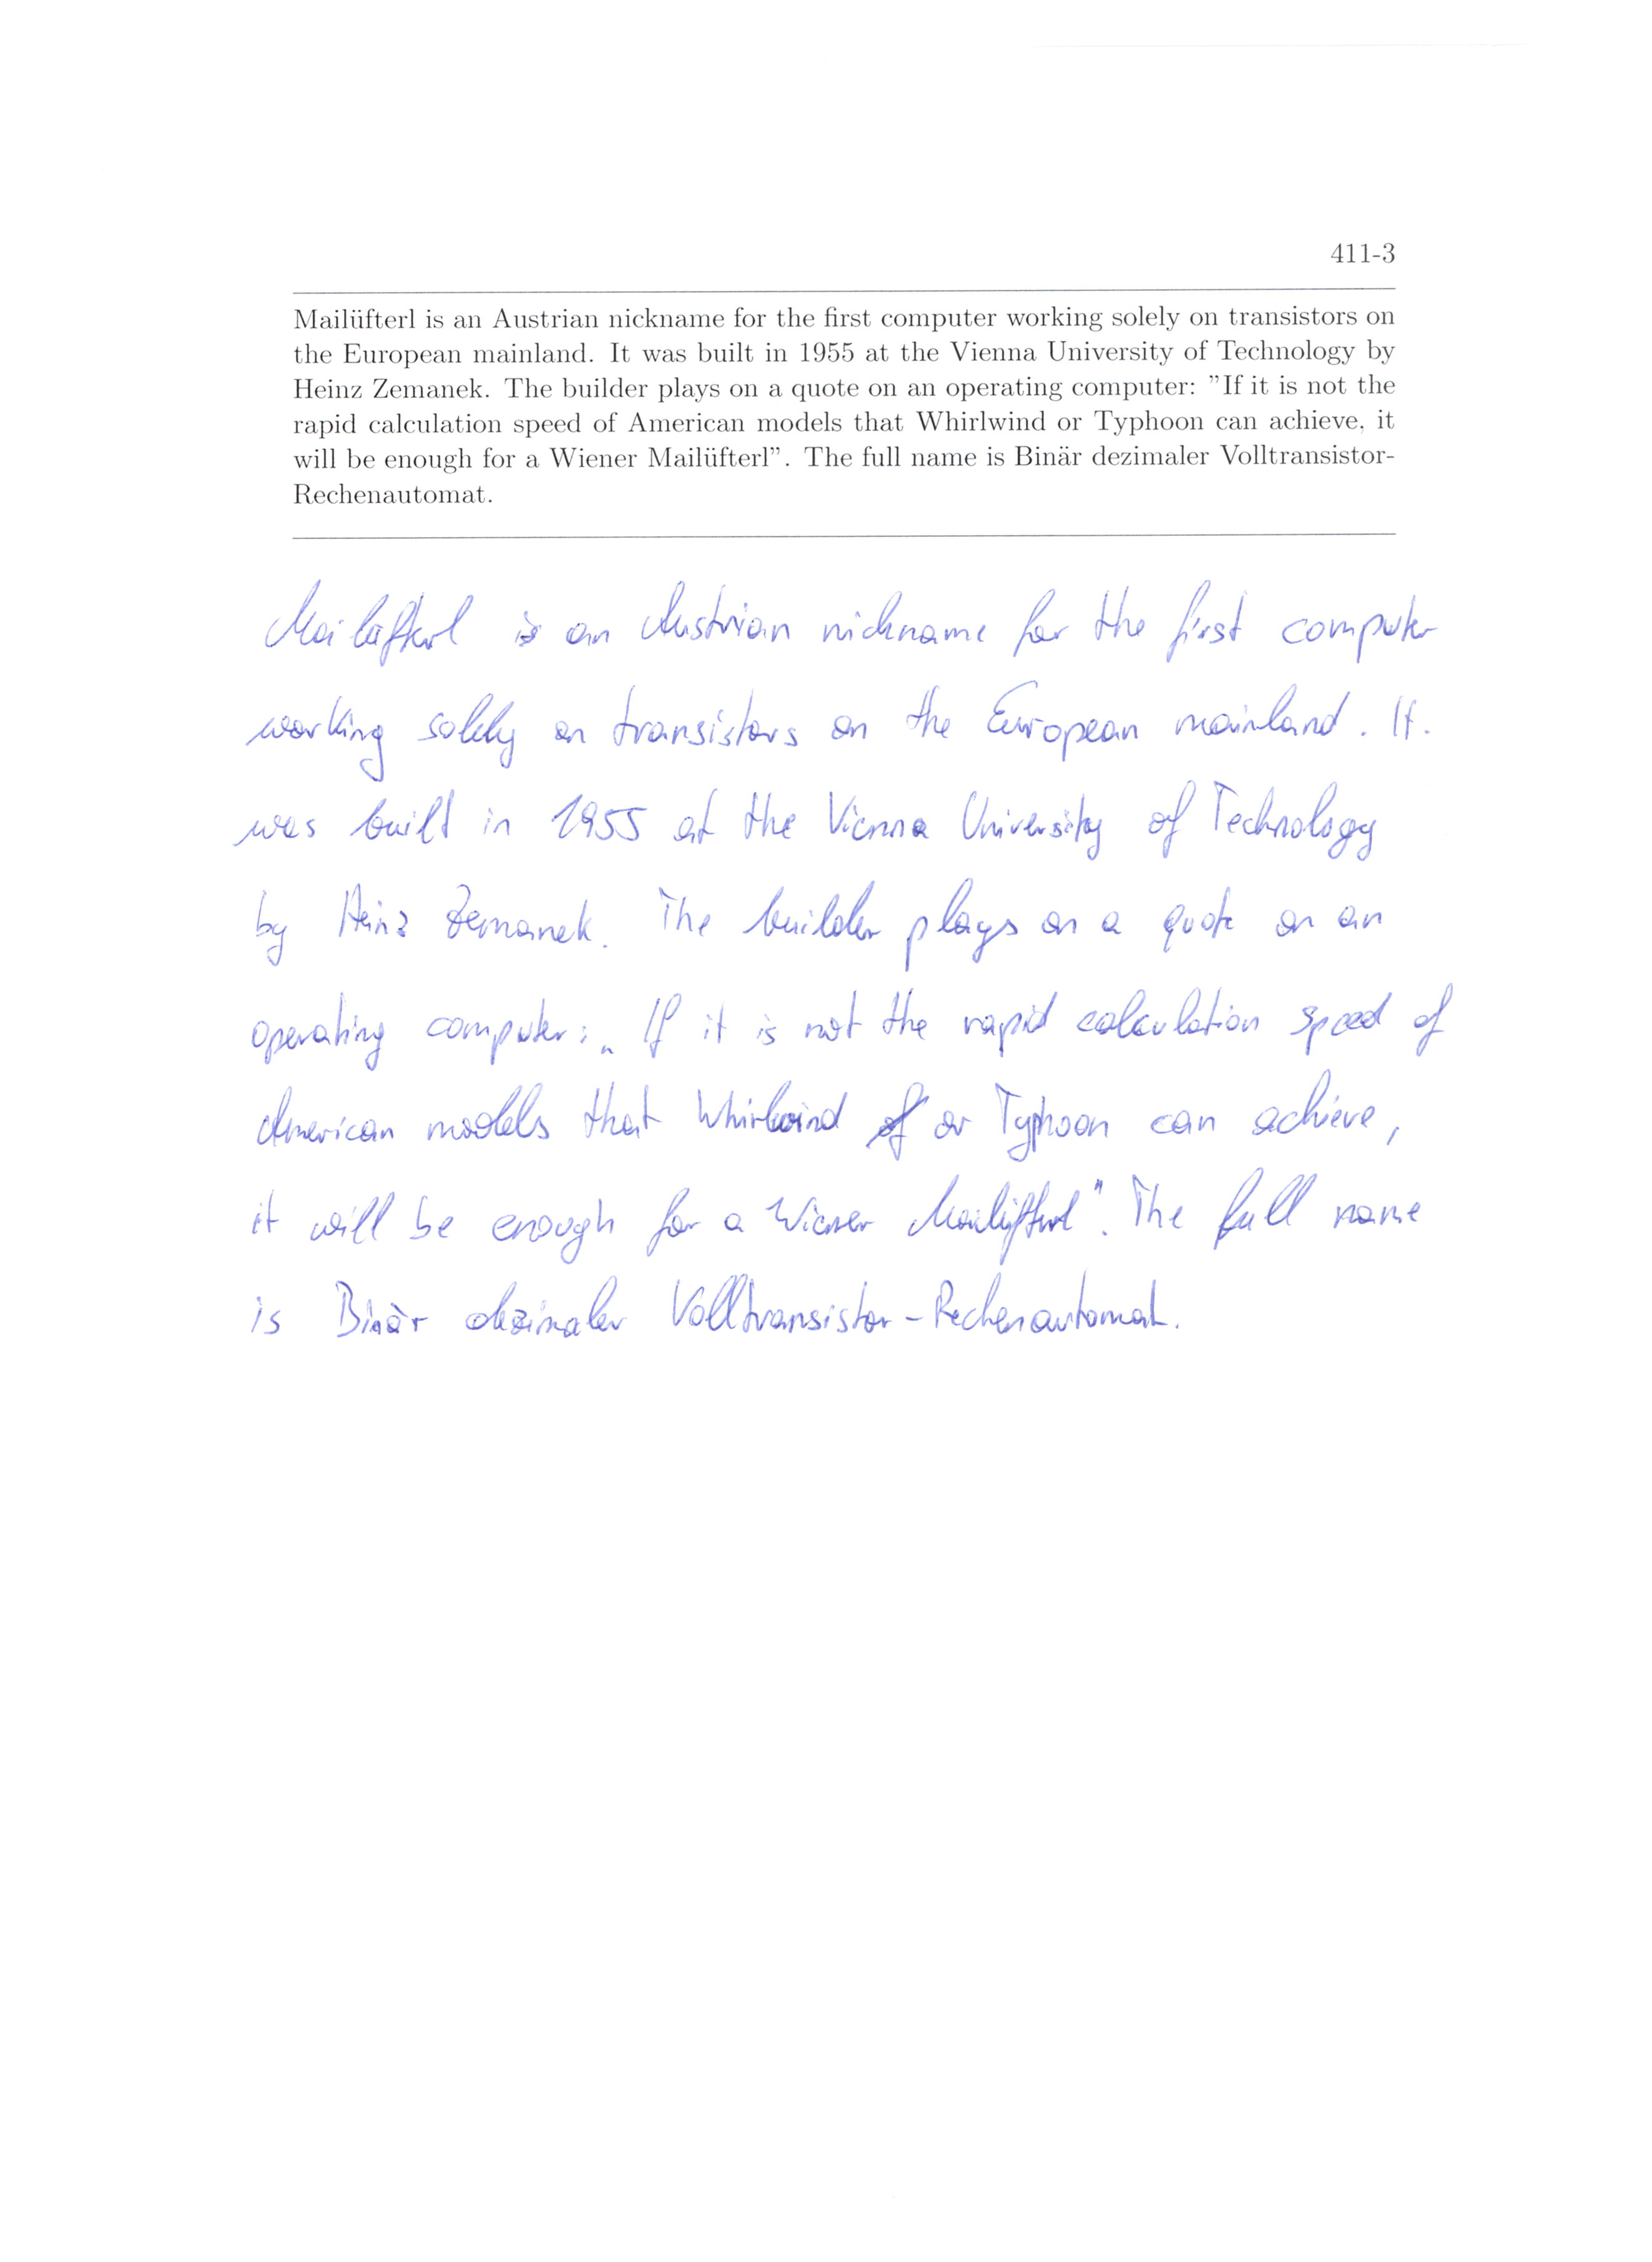 411-3
Mailüfterl is an Austrian nickname for the first computer working solely on transistors on
the European mainland. It was built in 1955 at the Vienna University of Technology by
Heinz Zemanek. The builder plays on a quote on an operating computer: ”If it is not the
rapid calculation speed of American models that Whirlwind or Typhoon can achieve, it
will be enough for a Wiener Mailüfterl”. The full name is Binär dezimaler Volltransistor-
Rechenautomat.
Mailüfterl is an Austrian nickname for the first computer
working solely on transistors on the European mainland. It
was built in 1955 at the Vienna University of Technology
by Heinz Zemanek. The builder plays on a quote on an
operating computer: „If it is not the rapid calculation speed of
American models that Whirlwind or Typhoon can achieve,
it will be enough for a Wiener Mailüfterl". The full name
is Binär dezimaler Volltransistor-Rechenautomat.